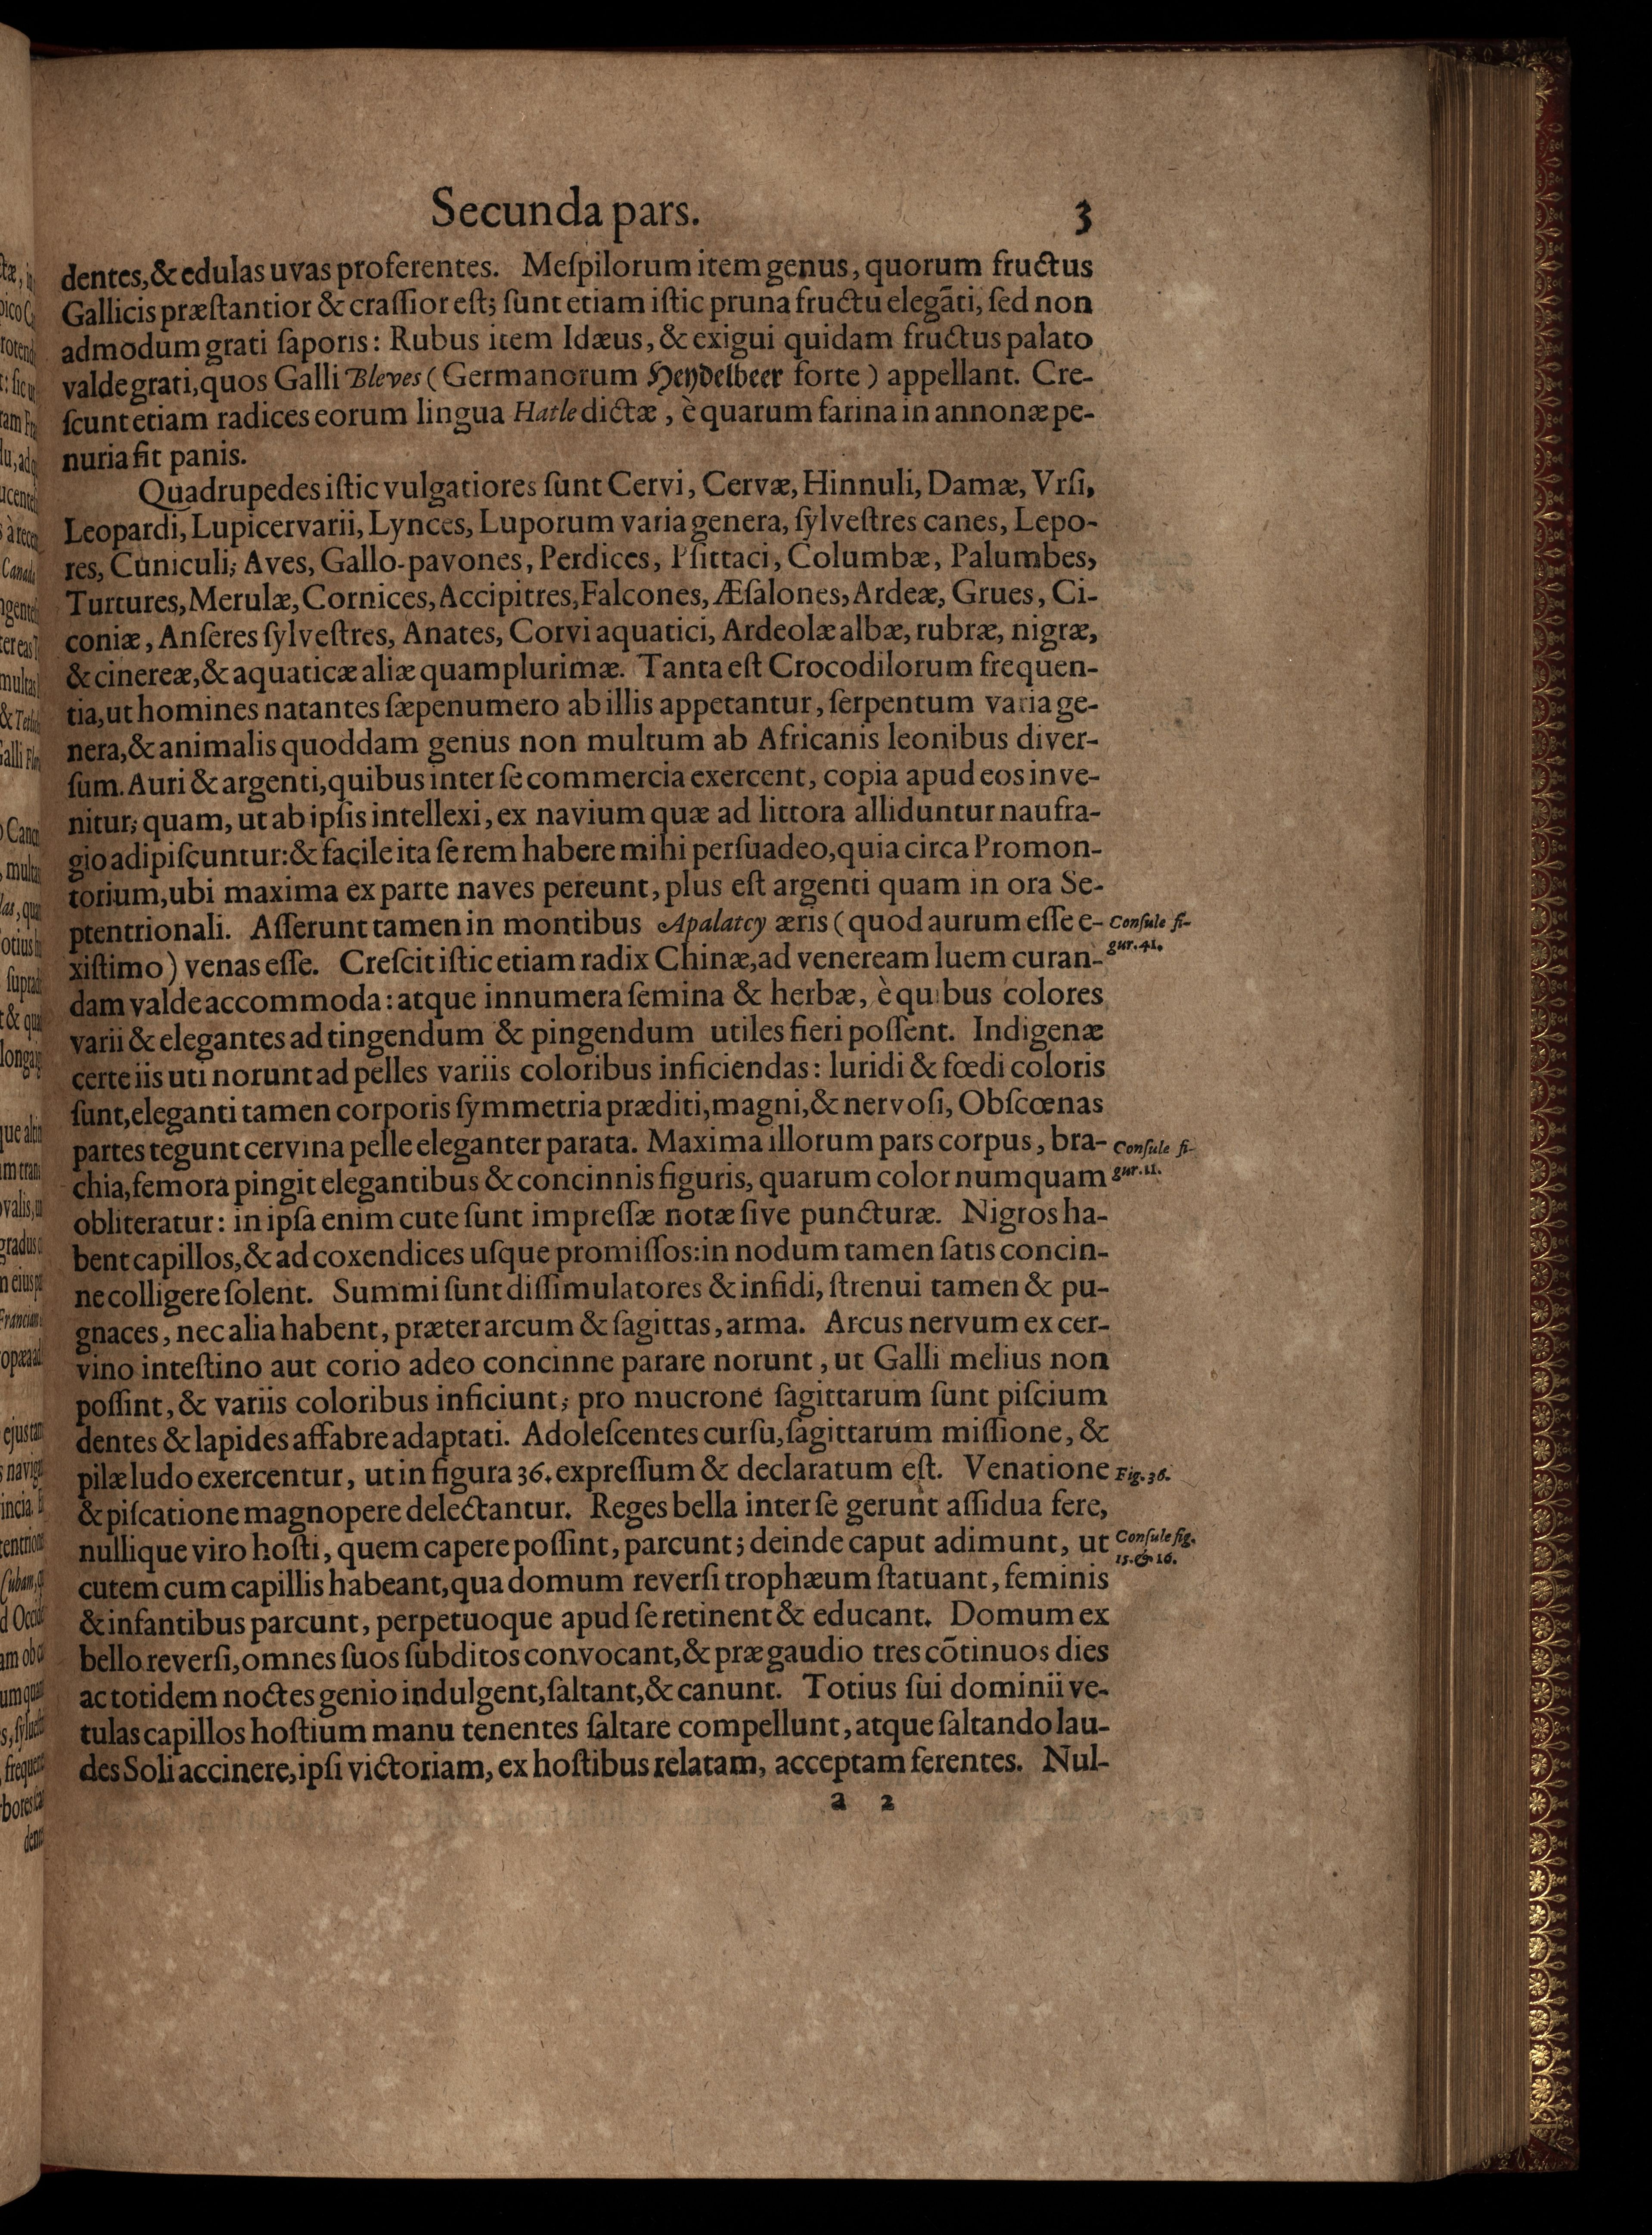 Secunda pars. 3
dentes, & edulas uvas proferentes. Meſpilorum item genus, quorum fructus
Gallicis præſtantior & craſſior eſt; ſunt etiam iſtic pruna fructu elegãti, ſed non
admodum grati ſaporis: Rubus item Idæus, & exigui quidam fructus palato
valde grati, quos Galli Bleves (Germanorum Heydelbeer forte) appellant. Cre-
ſcunt etiam radices eorum lingua Hatle dictæ, è quarum farina in annonæ pe-
nuria fit panis.
Quadrupedes iſtic vulgatiores ſunt Cervi, Cervæ, Hinnuli, Damæ, Vrſi,
Leopardi, Lupicervarii, Lynces, Luporum varia genera, ſylveſtres canes, Lepo-
res, Cuniculi; Aves, Gallo-pavones, Perdices, Pſittaci, Columbæ, Palumbes,
Turtures, Merulæ, Cornices, Accipitres, Falcones, Æſalones, Ardeæ, Grues, Ci-
coniæ, Anſeres ſylveſtres, Anates, Corvi aquatici, Ardeolæ albæ, rubræ, nigræ,
& cinereæ, & aquaticæ aliæ quamplurimæ. Tanta eſt Crocodilorum frequen-
tia, ut homines natantes ſæpenumero ab illis appetantur, ſerpentum varia ge-
nera, & animalis quoddam genus non multum ab Africanis leonibus diver-
ſum. Auri & argenti, quibus inter ſe commercia exercent, copia apud eos inve-
nitur; quam, ut ab ipſis intellexi, ex navium quæ ad littora alliduntur naufra-
gio adipiſcuntur: & facile ita ſe rem habere mihi perſuadeo, quia circa Promon-
torium, ubi maxima ex parte naves pereunt, plus eſt argenti quam in ora Se-
ptentrionali. Aſſerunt tamen in montibus Apalatcy æris (quod aurum eſſe e-
Conſule fi-
gur. 41.
xiſtimo) venas eſſe. Creſcit iſtic etiam radix Chinæ, ad veneream luem curan-
dam valde accommoda: atque innumera ſemina & herbæ, è quibus colores
varii & elegantes ad tingendum & pingendum utiles fieri poſſent. Indigenæ
certe iis uti norunt ad pelles variis coloribus inficiendas: luridi & fœdi coloris
ſunt, eleganti tamen corporis ſymmetria præditi, magni, & nervoſi, Obſcœnas
partes tegunt cervina pelle eleganter parata. Maxima illorum pars corpus, bra-
Conſule fi-
gur. 11.
chia, femora pingit elegantibus & concinnis figuris, quarum color numquam
obliteratur: in ipſa enim cute ſunt impreſſæ notæ ſive puncturæ. Nigros ha-
bent capillos, & ad coxendices uſque promiſſos: in nodum tamen ſatis concin-
ne colligere ſolent. Summi ſunt diſſimulatores & infidi, ſtrenui tamen & pu-
gnaces, nec alia habent, præter arcum & ſagittas, arma. Arcus nervum ex cer-
vino inteſtino aut corio adeo concinne parare norunt, ut Galli melius non
poſſint, & variis coloribus inficiunt; pro mucrone ſagittarum ſunt piſcium
dentes & lapides affabre adaptati. Adoleſcentes curſu, ſagittarum miſſione, &
pilæ ludo exercentur, ut in figura 36. expreſſum & declaratum eſt. Venatione
Fig. 36.
& piſcatione magnopere delectantur. Reges bella inter ſe gerunt aſſidua fere,
nullique viro hoſti, quem capere poſſint, parcunt; deinde caput adimunt, ut
Conſule fig.
15. & 16.
cutem cum capillis habeant, qua domum reverſi trophæum ſtatuant, feminis
& infantibus parcunt, perpetuoque apud ſe retinent & educant. Domum ex
bello reverſi, omnes ſuos ſubditos convocant, & præ gaudio tres cõtinuos dies
ac totidem noctes genio indulgent, ſaltant, & canunt. Totius ſui dominii ve-
tulas capillos hoſtium manu tenentes ſaltare compellunt, atque ſaltando lau-
des Soli accinere, ipſi victoriam, ex hoſtibus relatam, acceptam ferentes. Nul-
a 2